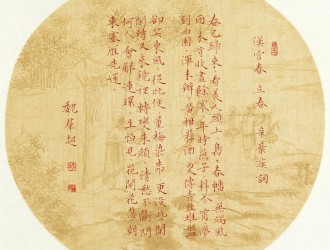 漢宮春 立春 辛棄疾詞
春已歸來看美人頭上裊裊春幡無端風
雨未肯收盡餘寒年時燕子料今宵夢
到西園渾未辦黃柑薦酒更傳青韭堆盤
卻笑東風從此便薰梅染柳更沒些閒
閒時又來鏡裡轉變朱顏清愁不斷問
何人會解連環生怕見花開花落朝
來塞雁先還
魏超